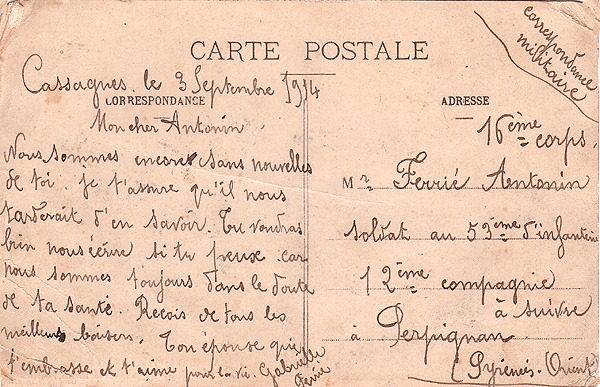 correspondance
militaire
CARTE POSTALE
Cassagnes le 3 Septembre 1914
CORRESPONDANCE
Mon cher Antonin
Nous sommes encore sans nouvelles
de toi. Je t'assure qu'il nous
tarderait d'en savoir. Tu voudras
bien nous écrire si tu peux car
nous sommes toujours dans le doute
de ta santé. Reçois de tous les
meilleurs baisers, Ton épouse qui
t'embrasse et t'aime pour la vie. Gabrielle
ADRESSE
16ème corps.
Mr Ferrié Antonin
soldat au 53ème d'infanterie
12ème compagnie
à suivre
à Perpignan
(Pyrénées-Orient)